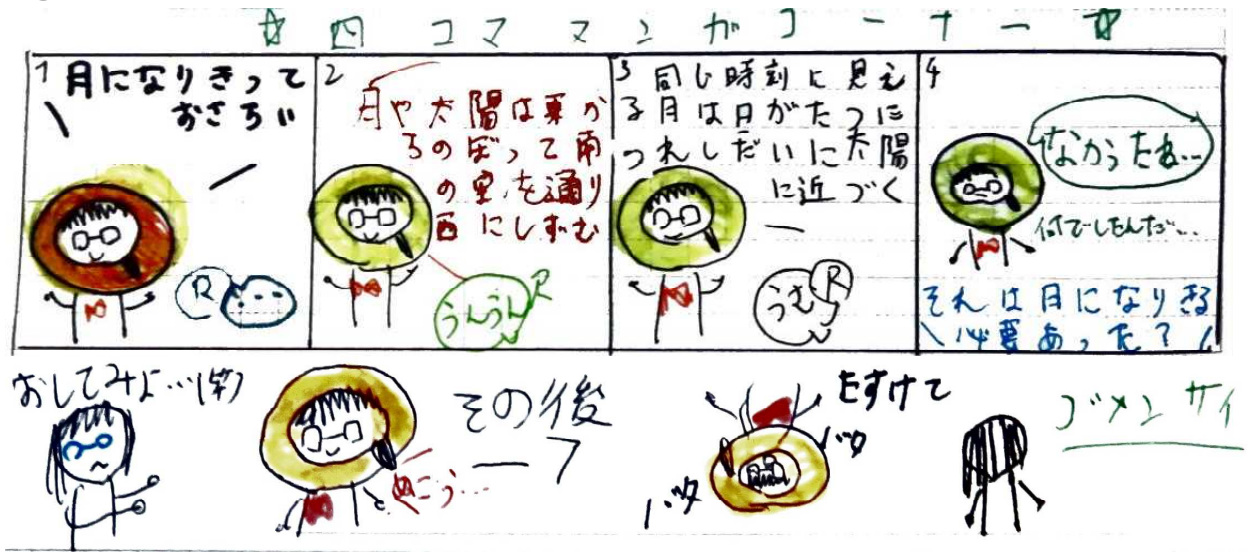 ☆四コママンガコーナー☆
1
月になりきって
おさらい
R
・・・
2
月や太陽は東か
らのぼって南
の空を通り
西にしずむ
うんうん
R
3
同じ時刻に見え
る月は日がたつに
つれしだいに太陽
に近づく
うむ
R
4
なかったね…
何でしたんだ…
それは月になりきる
必要あった?
おしてみよ…(笑)
その後
ぬこう…
たすけて
バタ
バタ
ゴメンサイ